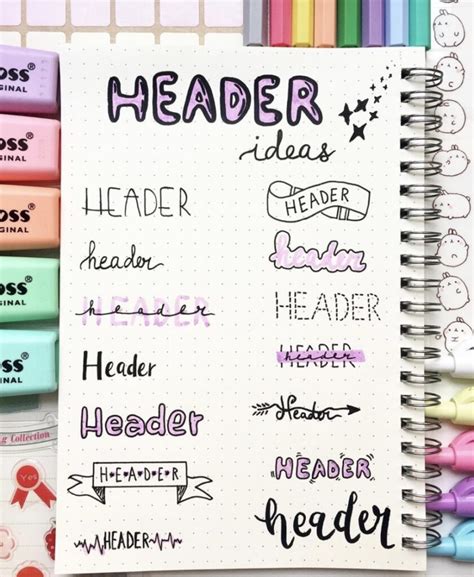 HEADER
ideas
HEADER
HEADER
header
header
HEADER
header
HEADER
HEADER
header
Header
Header
Header
HEADER
H•E•A•D•E•R
HEADER
header
OSS®
GINAL
OSS®
GINAL
OSS®
GINAL
OSS®
GINAL
OSS®
GINAL
Collection